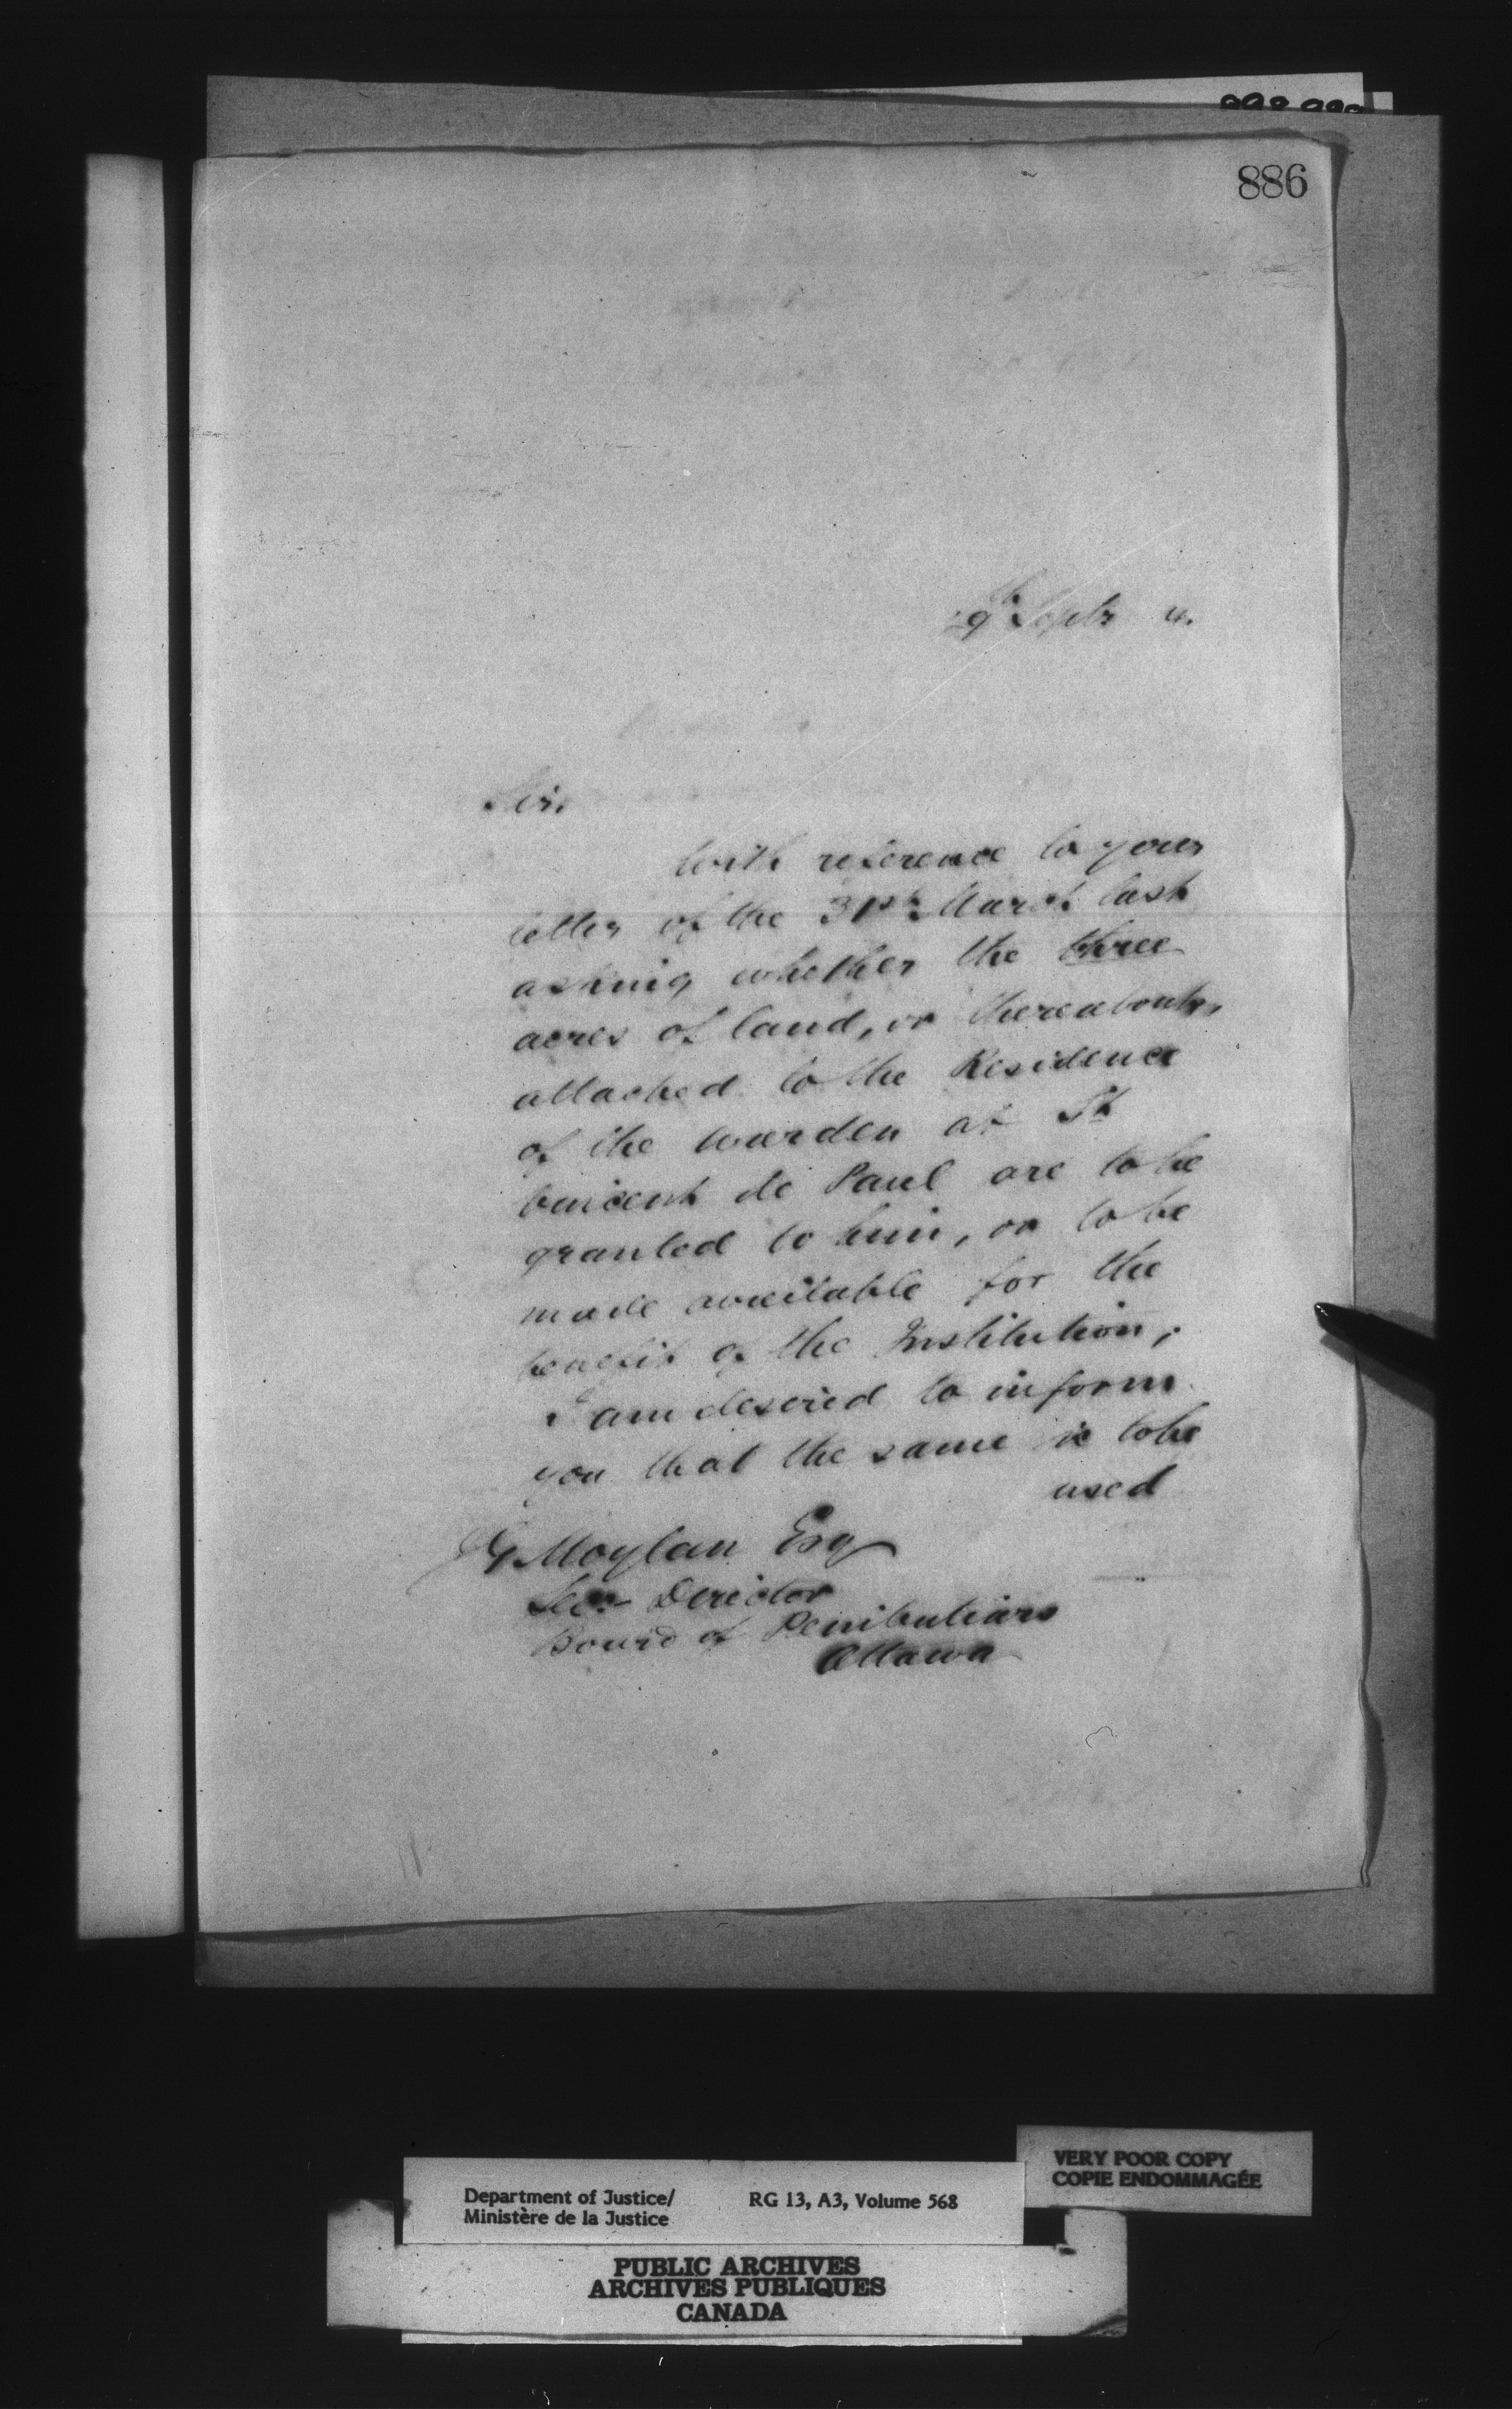 886
9th Septr 4.
Sir,
With reference to your
letter of the 31st March last
asking whether the three
acres of land, or thereabouts,
attached to the Residence
of the warden at St
Vincent de Paul are to be
granted to him, or to be
made available for the
benefit of the Institution,
I am desired to inform
you that the same is to be
used
J G Moylan Esq
Secy Director
Board of Penitentiaries
Ottawa
VERY POOR COPY
COPIE ENDOMMAGÉE
Department of Justice/ RG 13, A3, Volume 568
Ministère de la Justice
PUBLIC ARCHIVES
ARCHIVES PUBLIQUES
CANADA